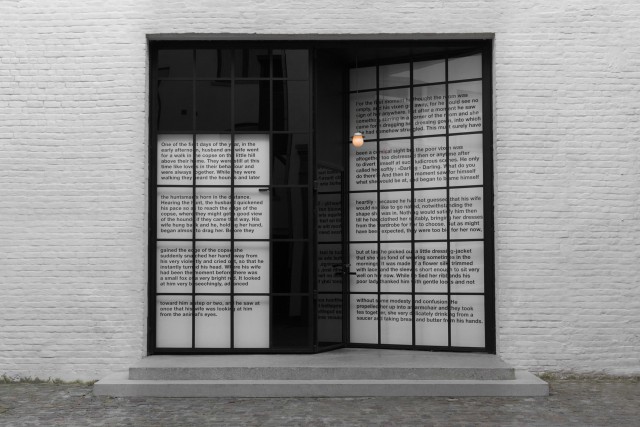 One of the first days of the year, in the
early afternoon, husband and wife went
for a walk in the copse on the little hill
above their home. They were still at this
time like lovers in their behaviour and
were always together. While they were
walking they heard the hounds and later
the huntsman's horn in the distance.
Hearing the hunt, the husband quickened
his pace so as to reach the edge of the
copse, where they might get a good view
of the hounds if they came that way. His
wife hung back and he, holding her hand,
began almost to drag her. Before they
gained the edge of the copse she
suddenly snatched her hand away from
his very violently and cried out, so that he
instantly turned his head. Where his wife
had been the moment before there was
a small fox of a very bright red. It looked
at him very beseechingly, advanced
toward him a step or two, and he saw at
once that his wife was looking at him
from the animal's eyes.
For the first moment he thought the room was
empty, and his vixen got away, for he could see no
sign of her anywhere. But after a moment he saw
something stirring in a corner of the room and she
came forth dragging her dressing-gown, into which
she had somehow struggled. This must surely have
been a comical sight but the poor vixen was
altogether too distressed then or anyone after
to divert himself at such ludicrous scenes. He only
called her softly: ›Darling - Darling. What do you
do there?‹ And then in a moment saw for himself
what she would be at, and began to blame himself
heartily – because he had not guessed that his wife
would not like to go naked, notwithstanding the
shape she was in. Nothing would satisfy him then
till he had clothed her suitably, bringing her dresses
from the wardrobe for her to choose. But as might
have been expected, they were too big for her now,
but at last he picked out a little dressing-jacket
that she was fond of wearing sometimes in the
mornings. It was made of a flower silk trimmed
with lace and the sleeves short enough to sit very
well on her now. While he tied her ribands his
poor lady thanked him with gentle looks and not
without some modesty and confusion. He
propped her up into an armchair and they took
tea together, she very delicately drinking from a
saucer and taking bread and butter from his hands.